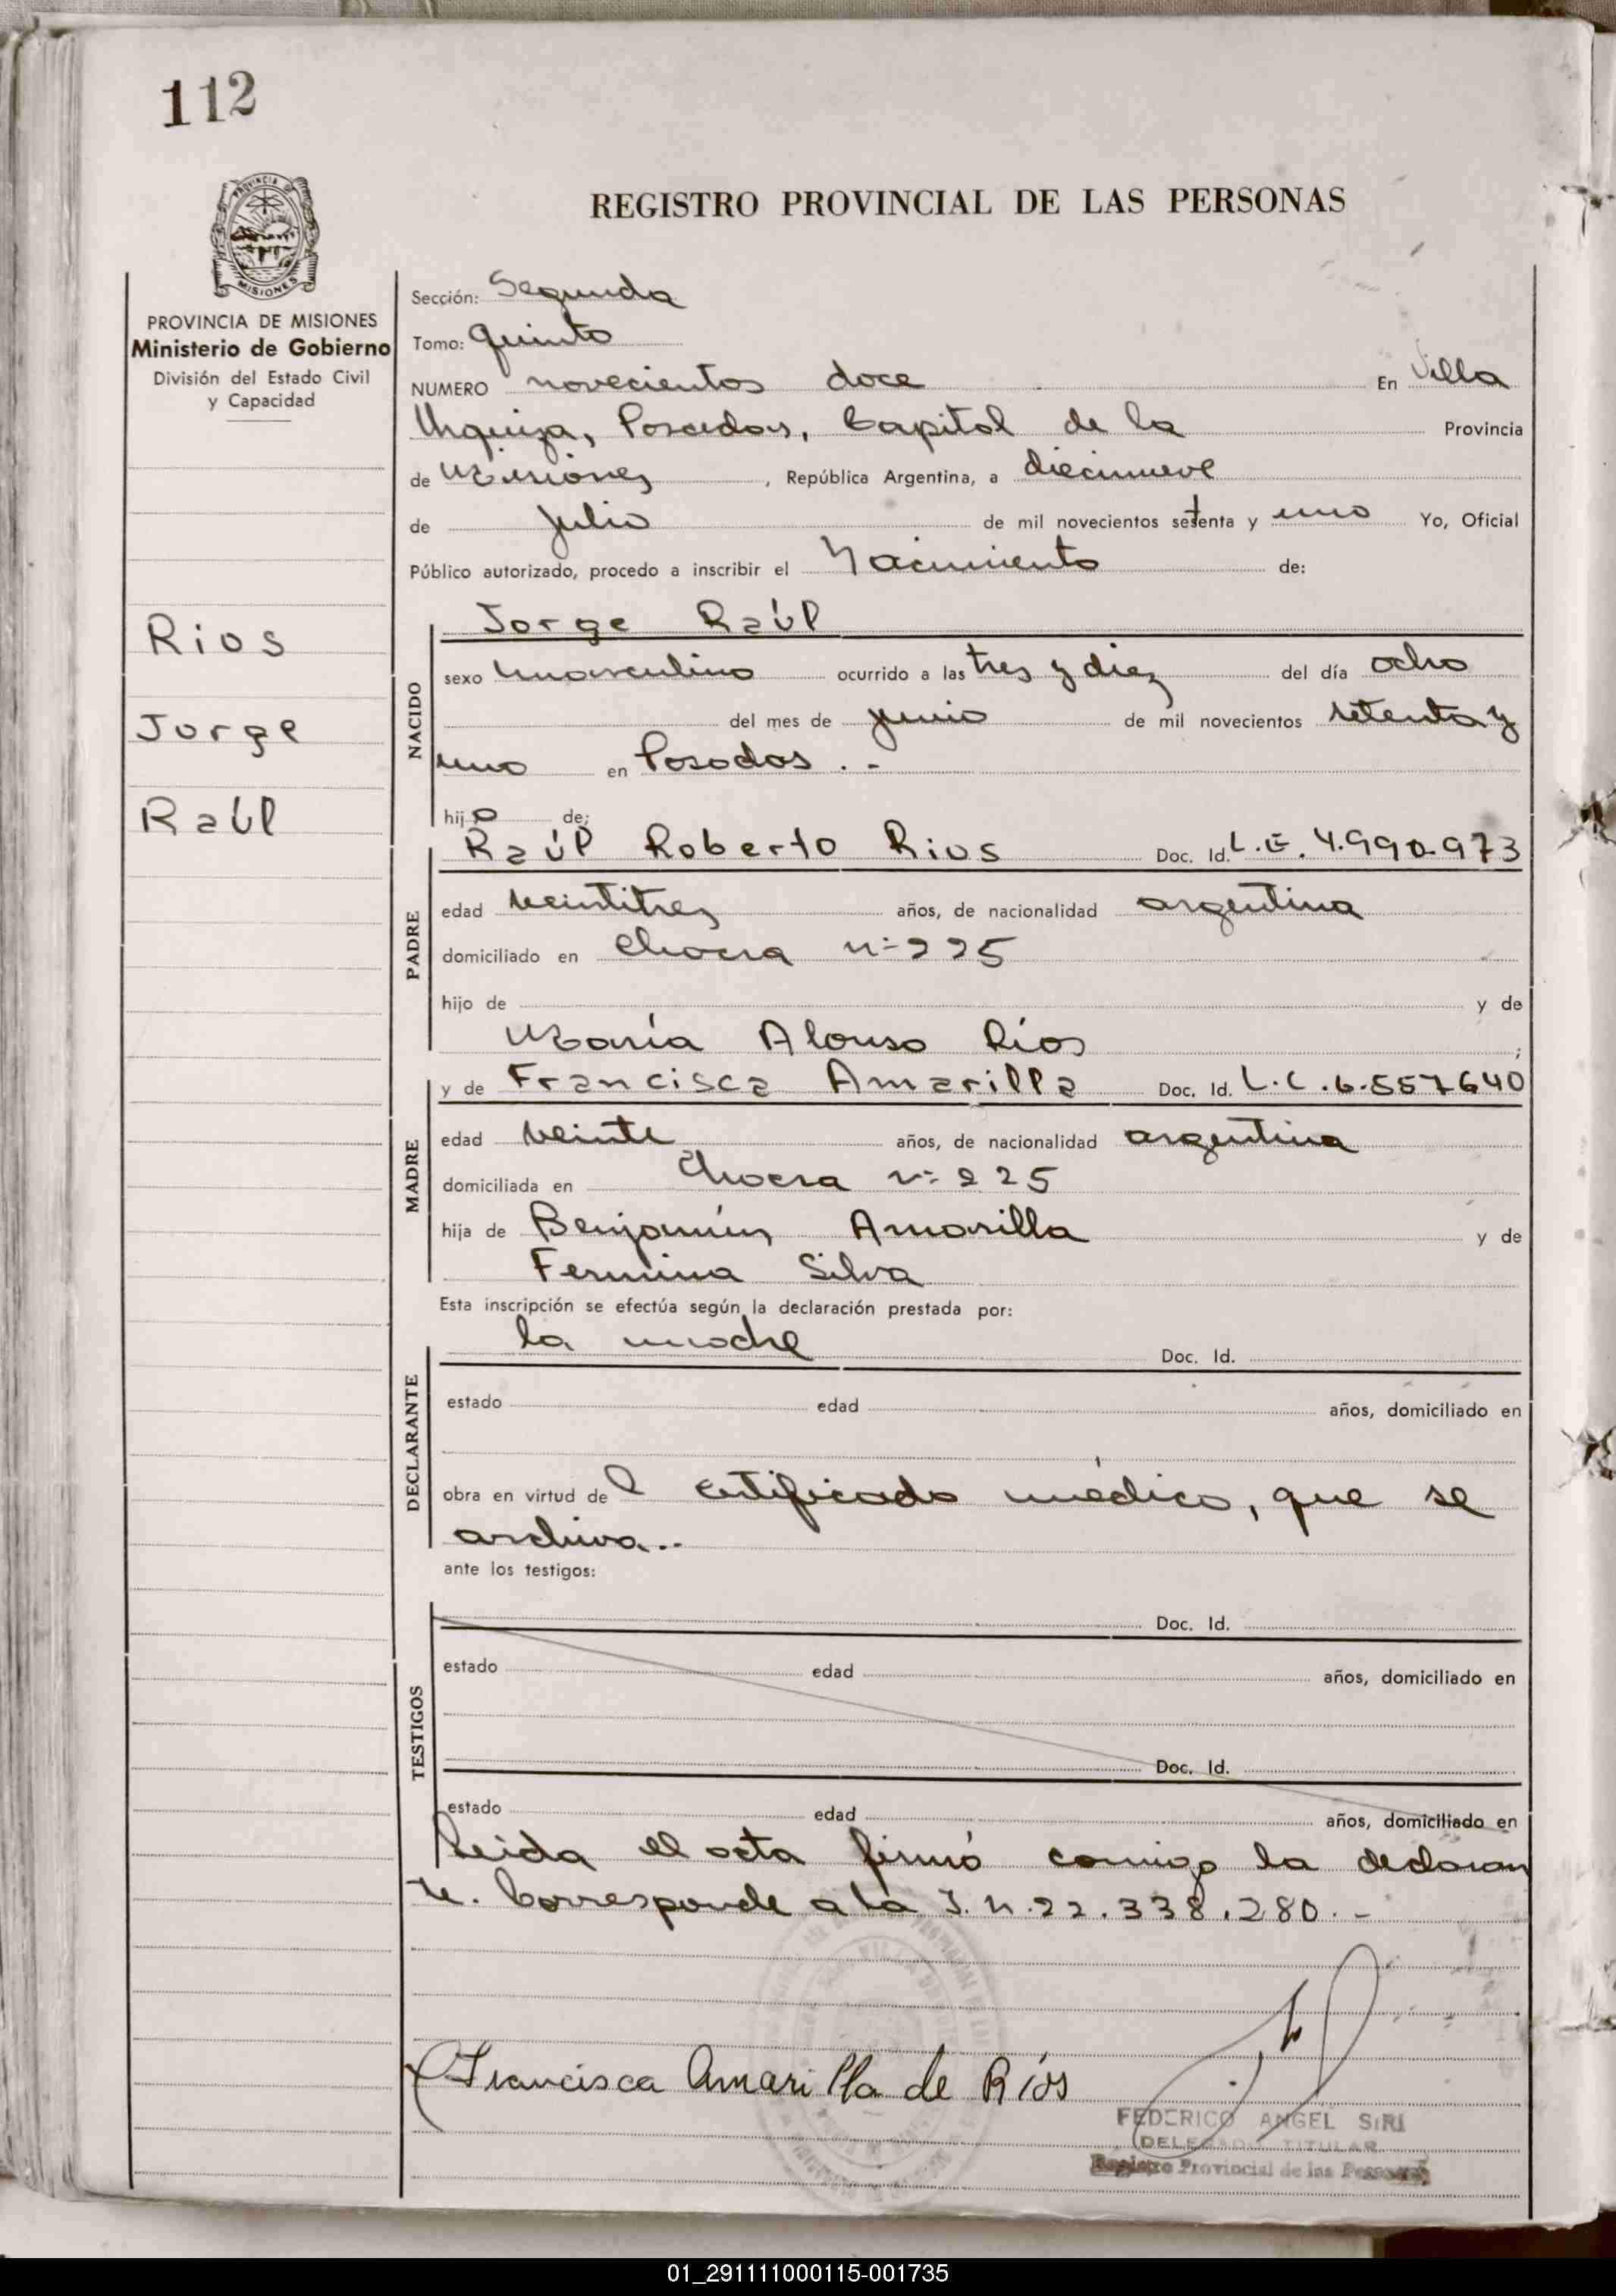 112
PROVINCIA DE
MISIONES
PROVINCIA DE MISIONES
Ministerio de Gobierno
División del Estado Civil
y Capacidad
Rios
Jorge
Raúl
REGISTRO PROVINCIAL DE LAS PERSONAS
Sección: Segunda
Tomo: Quinto
NUMERO novecientos doce En Villa
Urquiza, Posadas, Capital de la Provincia
de Misiones, República Argentina, a diecinueve
de julio de mil novecientos setenta y uno Yo, Oficial
Público autorizado, procedo a inscribir el Nacimiento de:
Jorge Raúl
NACIDO
sexo masculino ocurrido a las tres y diez del día ocho
del mes de junio de mil novecientos setenta y
uno en Posadas . -
hijo de;
Raúl Roberto Rios Doc. Id. L.E. 4.990.973
PADRE
edad veintitres años, de nacionalidad argentina
domiciliado en Chacra nº 225
hijo de y de
María Alonso Ríos ;
y de Francisca Amarilla Doc. Id. L.C. 6.557640
MADRE
edad veinte años, de nacionalidad argentina
domiciliada en Chacra nº 225
hija de Benjamín Amarilla y de
Fermina Silva
Esta inscripción se efectúa según la declaración prestada por:
la madre Doc. Id.
DECLARANTE
estado edad años, domiciliado en
obra en virtud del certificado médico, que se
archiva..
ante los testigos:
Doc. Id.
TESTIGOS
estado edad años, domiciliado en
Doc. Id.
estado edad años, domiciliado en
Leida el acta firmó conmigo la declaran
te. Corresponde a la I.N. 22.338.280. -
Francisca Amarilla de Ríos
FEDERICO ANGEL SIRI
DELEGADO TITULAR
Registro Provincial de las Personas
01_291111000115-001735